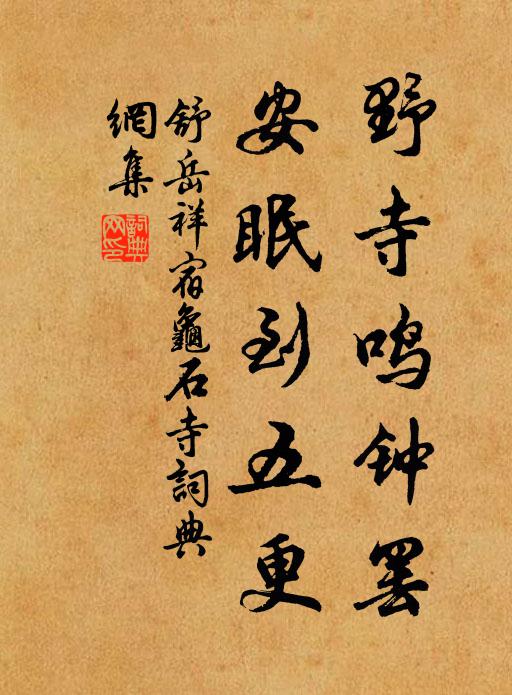 野寺鸣钟罢
安眠到五更
舒岳祥宿龜石寺詞典
網集
詞典网印